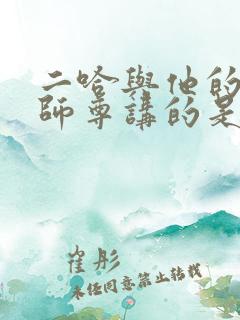 二哈與他的
師尊講的是
崔彤
未经同意禁止转载